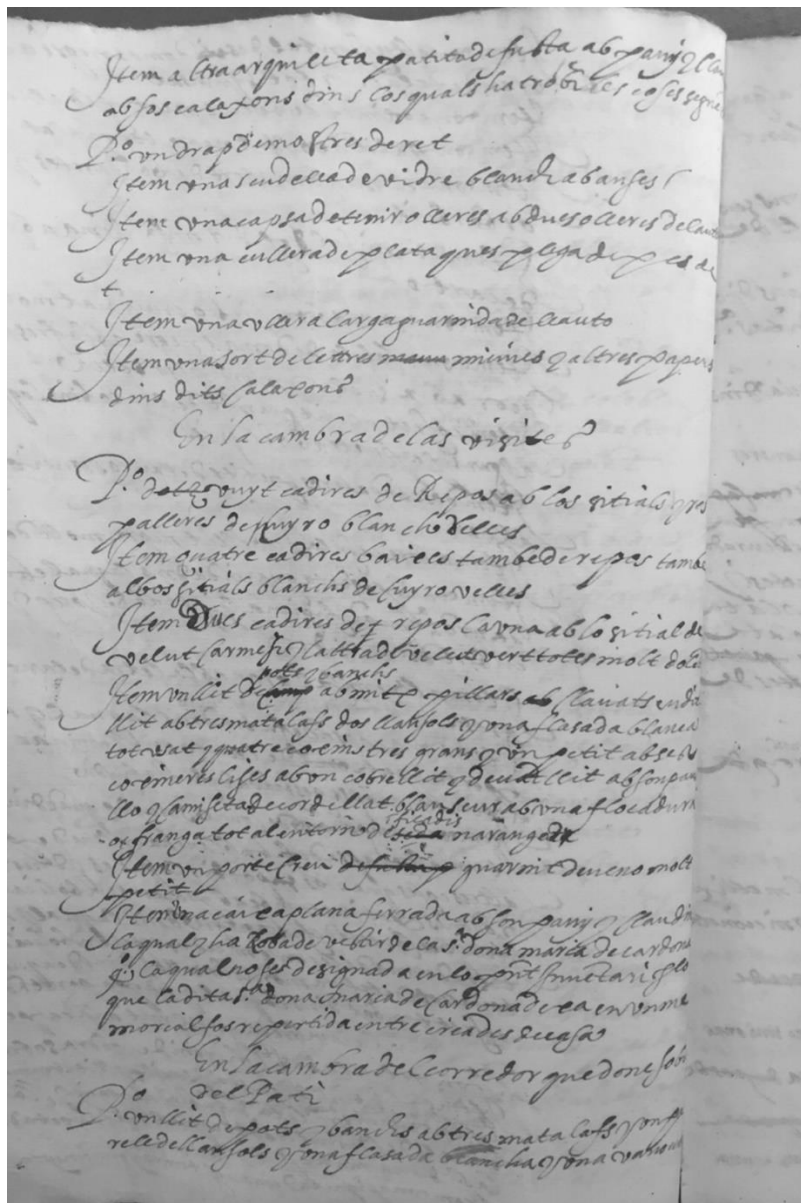 Item altra arquileta patita de fusta ab pany y clau
ab sos calaxons dins los quals ha trobat les coses segue
P.º un drap de mostres de ret
Item una scudella de vidre blanch ab anses
Item una capsa de tenir olleres ab dues olleres de lauto
Item una cullera de plata ques plega de pes de
t
Item una ullera larga guarnida de llauto
Item una sort de letres missives y altres papers
dins dits calaxons
En la cambra de las visites
P.º vuyt cadires de Repos ab los sitials y res
palleres de cuyro blanch velles
Item quatre cadires baixes tambe de repos tambe
ab los sitials blanchs de cuyro velles
Item Dues cadires de repos la una ab lo sitial de
velut carmesi y laltra de velut vert totes molt dole
pots y banchs
Item un llit de ab mitx pillars clavats en dit
llit ab tres matalass dos llansols y una flasada blanca
tot usat y quatre coxins tres grans y un petit ab ses
coxineres lises ab un cobrellit y devant llit ab son pave
llo y camiseta de cordellat blanc scur ab una flocadura
o franga tot al entorn de naranga
Item un porte creu guarnit de veno molt
petit
Item una caixa plana ferrada ab son pany y clau di
la qual y ha Roba de vestir de la S.ª dona maria de cardona
q.º la qual no es designada en lo pnt Inventari p lo
que la dita S.ª dona Maria de Cardona dexa en un me
morial fos repertida entre criades de casa
En la cambra del corredor que done sobre
del Pati
P.º un llit de pots y banchs ab tres matalass y un pa
rell de llansols y una flasada blancha y una vanova